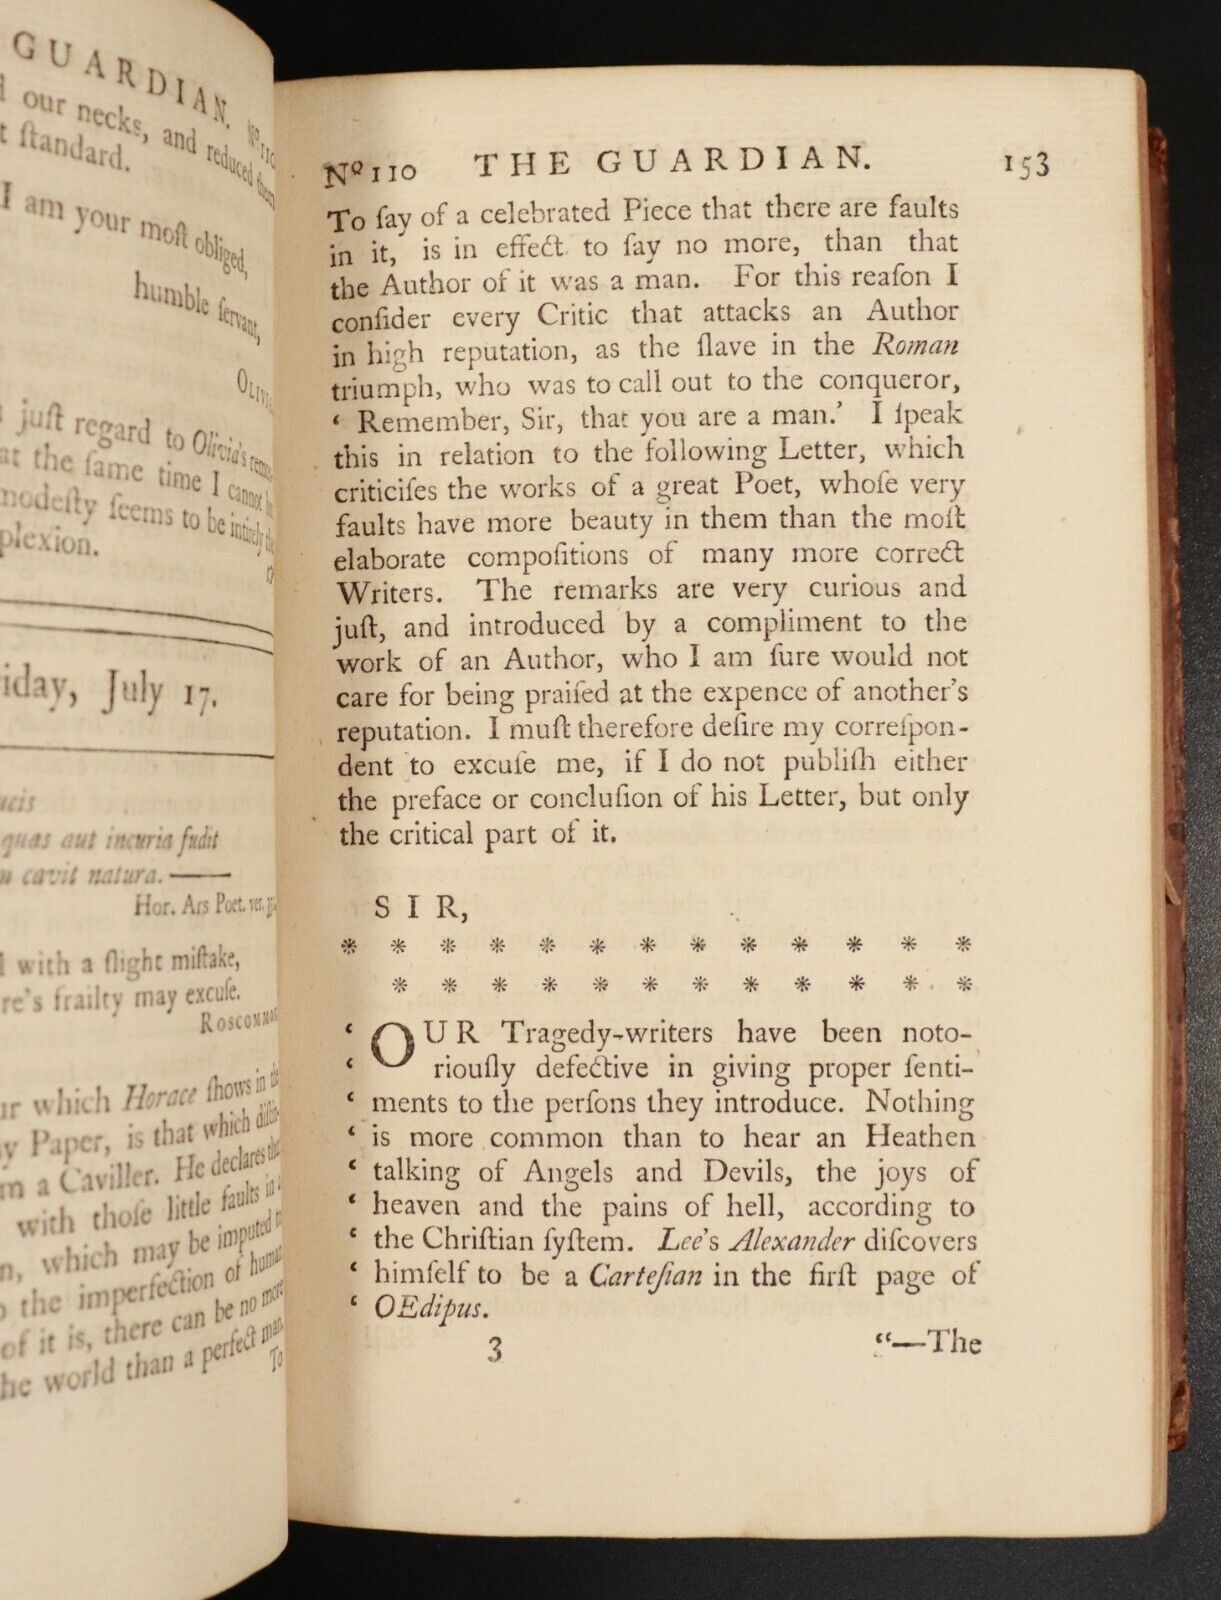 GUARDIAN. Nº 110
our necks, and reduced them
ſtandard.
I am your moſt obliged,
humble ſervant,
OLIVIA
juſt regard to Olivia's
at the ſame time I cannot
modeſty ſeems to be intirely the
plexion.
iday, July 17.
quas aut incuria fudit
cavit natura.——
Hor. Ars Poet. ver.
with a ſlight miſtake,
re's frailty may excuſe.
ROSCOMMON
ur which Horace ſhows in the
y Paper, is that which
m a Caviller. He declares that
with thoſe little faults in
n, which may be imputed to
the imperfection of human
of it is, there can be no more
he world than a perfect man.
To
Nº 110 THE GUARDIAN. 153
To ſay of a celebrated Piece that there are faults
in it, is in effect to ſay no more, than that
the Author of it was a man. For this reaſon I
conſider every Critic that attacks an Author
in high reputation, as the ſlave in the Roman
triumph, who was to call out to the conqueror,
‘ Remember, Sir, that you are a man.’ I ſpeak
this in relation to the following Letter, which
criticiſes the works of a great Poet, whoſe very
faults have more beauty in them than the moſt
elaborate compoſitions of many more correct
Writers. The remarks are very curious and
juſt, and introduced by a compliment to the
work of an Author, who I am ſure would not
care for being praiſed at the expence of another's
reputation. I muſt therefore deſire my correſpon-
dent to excuſe me, if I do not publiſh either
the preface or concluſion of his Letter, but only
the critical part of it.
SIR,
* * * * * * * * * * * * *
* * * * * * * * * * * *
‘ OUR Tragedy-writers have been noto-
‘ riouſly defective in giving proper ſenti-
‘ ments to the perſons they introduce. Nothing
‘ is more common than to hear an Heathen
‘ talking of Angels and Devils, the joys of
‘ heaven and the pains of hell, according to
‘ the Chriſtian ſyſtem. Lee's Alexander diſcovers
‘ himſelf to be a Carteſian in the firſt page of
‘ OEdipus.
3 “—The